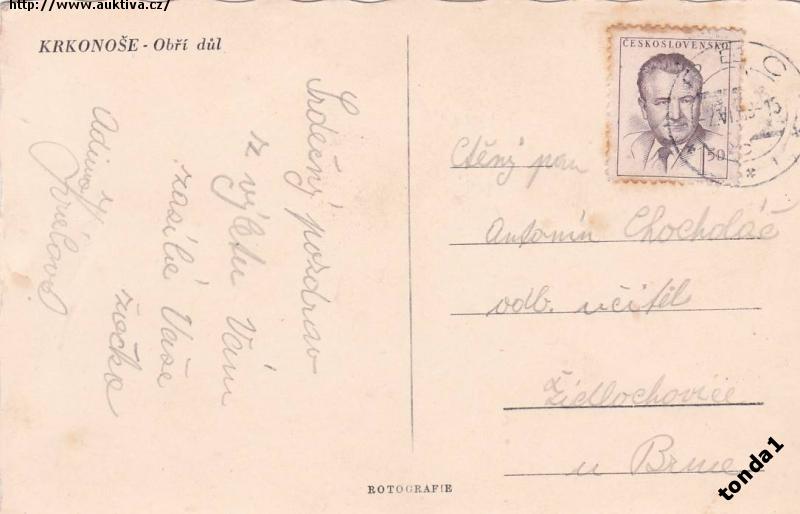 http://www.auktiva.cz/
KRKONOŠE - Obří důl
Srdečný pozdrav
z výletu Vám
zasílá Vaše
žačka
ČESKOSLOVENSKO
50
Ctěný pan
Antonín Chocholáč
odb. učitel
Židlochovice
u Brna
ROTOGRAFIE
tonda1